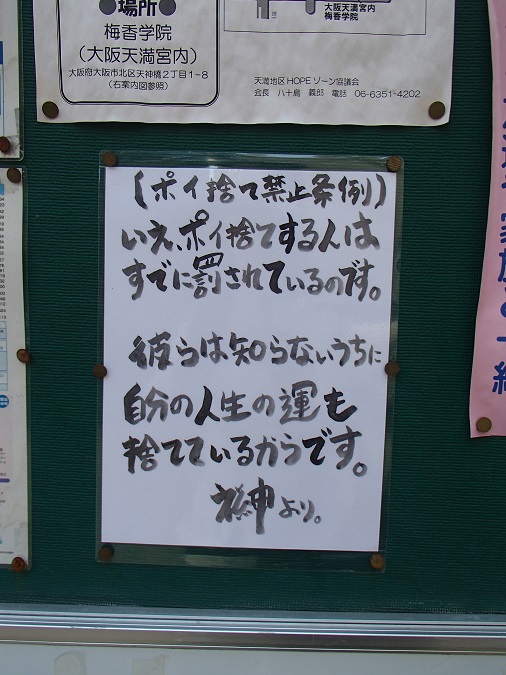 ●場所●
梅香学院
(大阪天満宮内)
大阪府大阪市北区天神橋2丁目1-8
(右案内図参照)
大阪天満宮内
梅香学院
天満地区HOPEゾーン協議会
会長 八十島 義郎 電話 06-6351-4202
(ポイ捨て禁止条例)
いえ、ポイ捨てする人は
すでに罰されているのです。
彼らは知らないうちに
自分の人生の運も
捨てているからです。
神より。